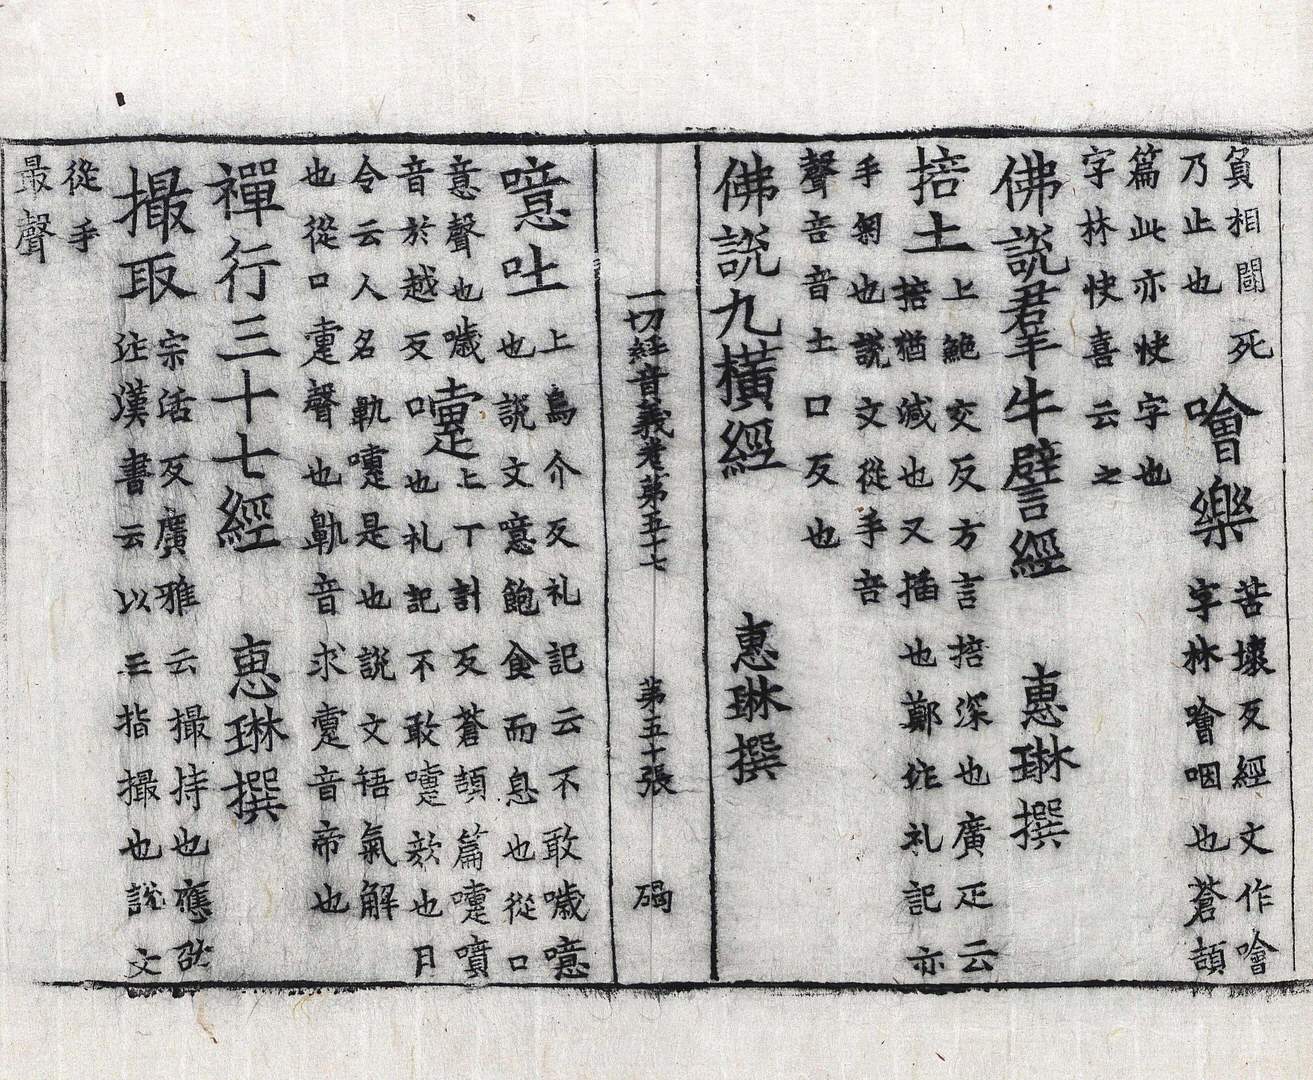 負相鬪死
乃止也
噲樂
苦壞反經文作噲
字林噲咽也蒼頡
篇此亦快字也
字林快喜云之
佛說羣牛譬經 惠琳撰
掊土
上鮑交反方言掊深也廣疋云
掊猶減也又插也鄭注礼記亦
手匊也說文從手咅
聲咅音土口反也
佛說九橫經 惠琳撰
一切経音義卷第五十七 第五十張 碣
噫吐
上烏介反礼記云不敢噦噫
也說文噫飽食而息也從口
意聲也噦
音於越反口
嚏
上丁計反蒼頡篇嚏噴
也礼記不敢嚏欬也月
令云人名鼽嚏是也說文啎氣解
也從口疐聲也鼽音求疐音帝也
禪行三十七經 惠琳撰
撮取
宗活反廣雅云撮持也應邵
注漢書云以三指撮也說文
從手
最聲